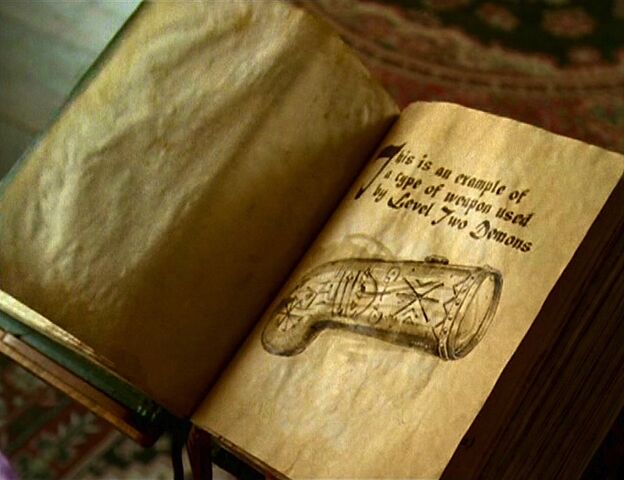 This is an example of
a type of weapon used
by Level Two Demons